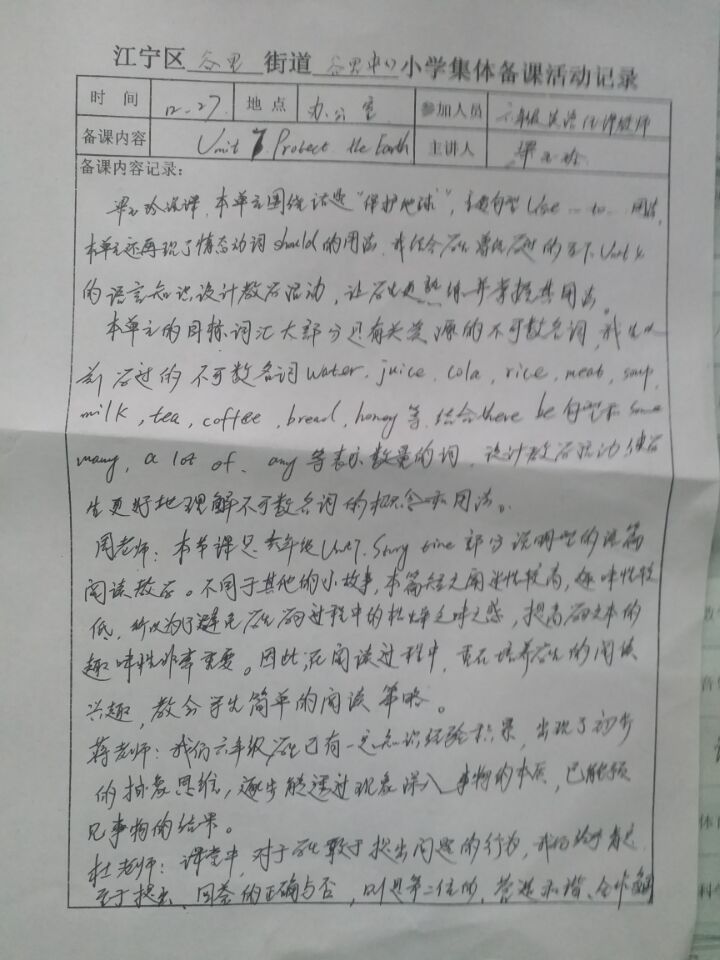 江宁区 谷里 街道 谷里中心 小学集体备课活动记录
时 间 12.27. 地 点 办公室 参加人员 六年级英语任课教师
备课内容 Unit 7 Protect the Earth 主讲人
备课内容记录：
说课，本单元围绕话题“保护地球”，句型 Use … to … 用法，
本单元还再现了情态动词 should 的用法。
的语言知识设计教学活动，让学生更熟练并掌握其用法。
本单元的目标词汇大部分是有关资源的不可数名词，
前学过的不可数名词 water, juice, cola, rice, meat, soup,
milk, tea, coffee, bread, honey 等，结合 there be 句型和 some
many, a lot of, any 等表示数量的词，设计教学活动使学
生更好地理解不可数名词的概念和用法。
周老师：本节课是六年级 Unit 7. Story time 部分说明型的语篇
阅读教学。不同于其他的小故事，本篇短文阐述性较高，趣味性较
低，所以为了避免学生学习过程中的枯燥乏味之感，提高学习文本的
趣味性非常重要。因此，在阅读过程中，重在培养学生的阅读
兴趣，教会学生简单的阅读策略。
蒋老师：我们六年级学生已有一定知识经验积累，出现了初步
的抽象思维，逐步能透过现象深入事物的本质，已能预
见事物的结果。
杜老师：课堂中，对于学生敢于提出问题的行为，我们给予肯定，
至于提出、回答的正确与否，则是第二位的，营造和谐、合作